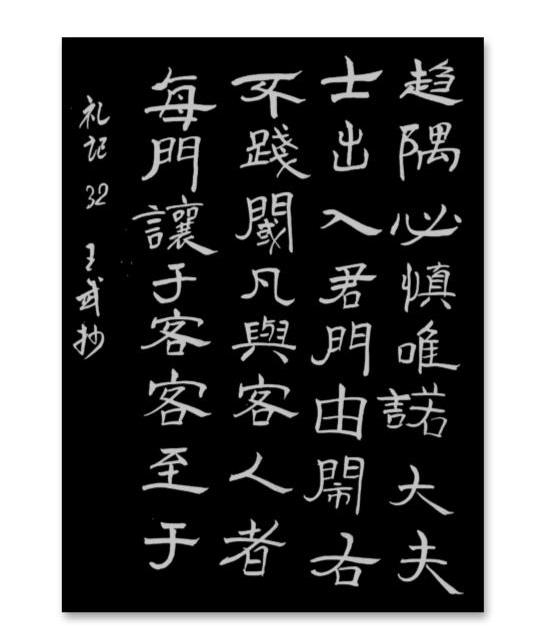 趋隅必慎唯諾大夫
士出入君門由闑右
不踐閾凡與客人者
每門讓于客客至于
礼记 32 王武抄